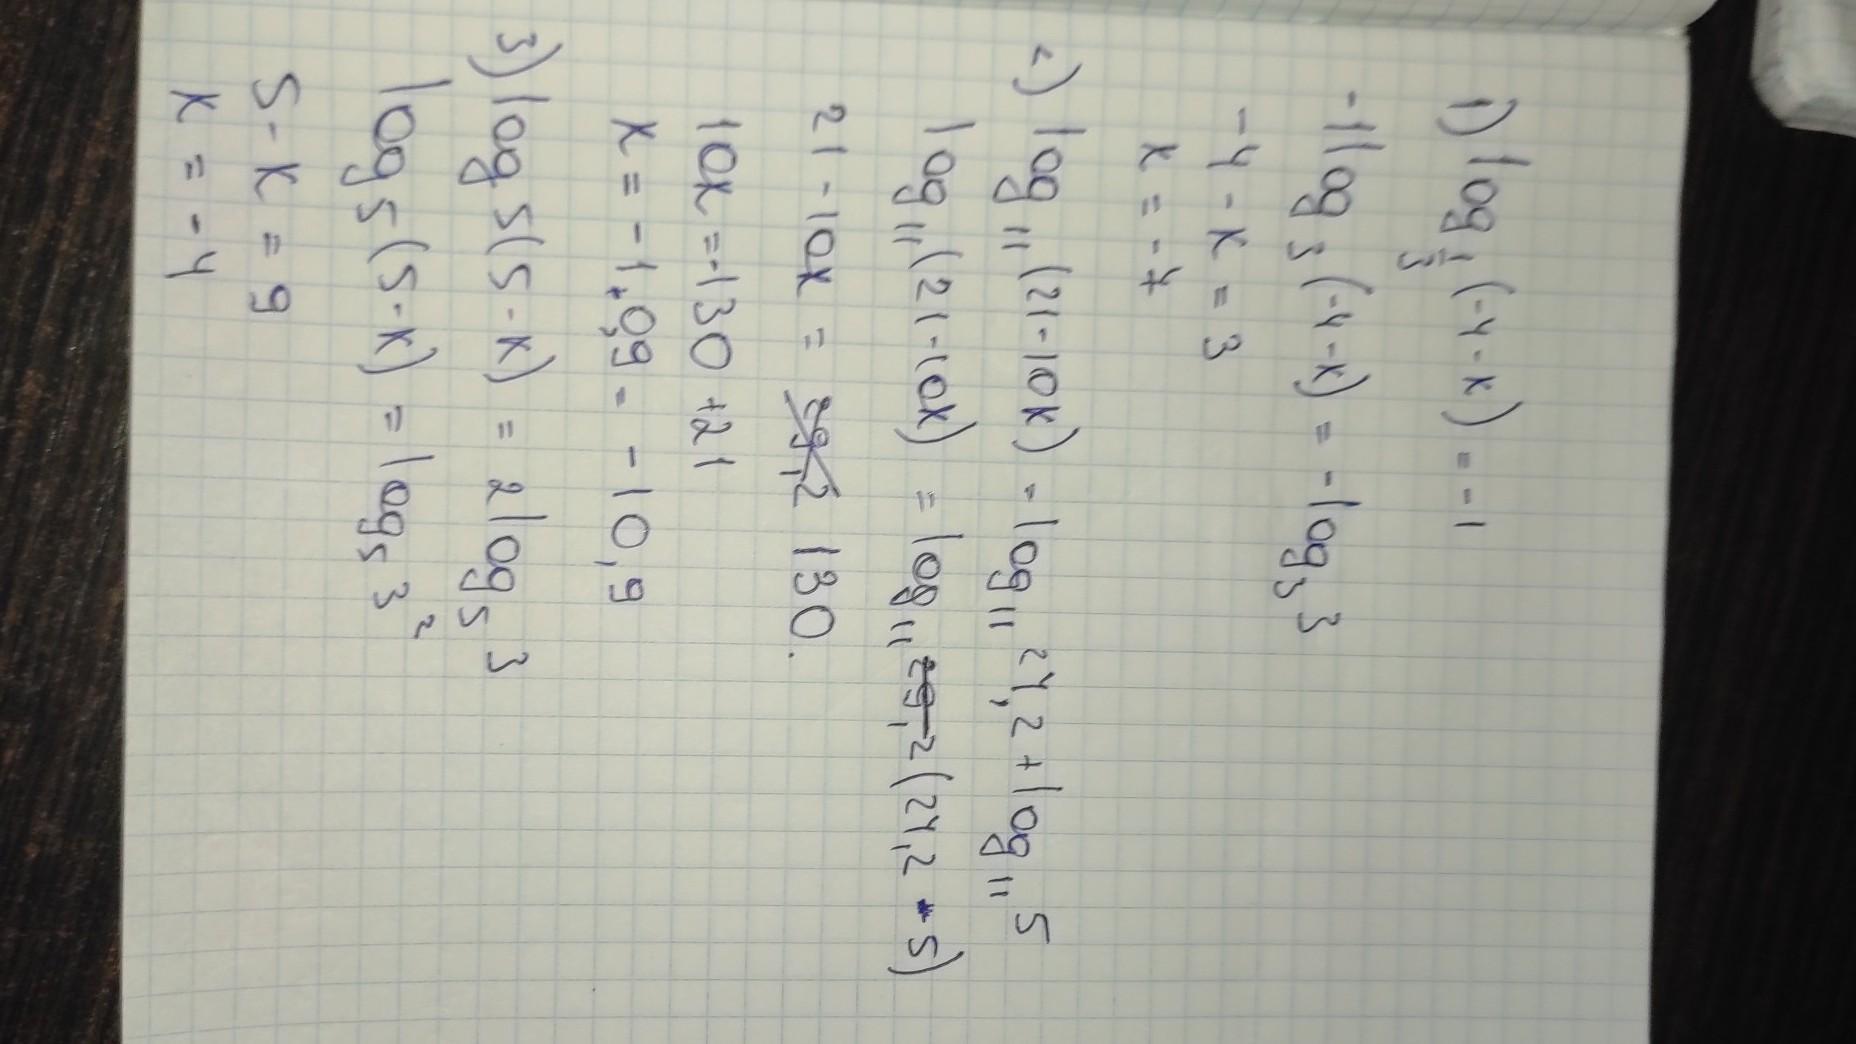 1) log 1/3 (-4-x) = -1
-1log 3 (-4-x) = -log 3 3
-4-x = 3
x = -7
2) log 11 (21-10x) - log 11 24,2 + log 11 5
log 11 (21-10x) = log 11 (24,2 * 5)
21-10x = 130.
10x = -130 + 21
x = -1,0,9 = -10,9
3) log 5 (5-x) = 2log 5 3
log 5 (5-x) = log 5 3²
5-x = 9
x = -4